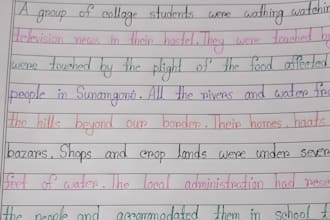 A group of collage students were wathing watchin
television news in their hostel. They were touched by
were touched by the plight of the food affected
people in Sunamgonj. All the rivers and water from
the hills beyond our border. Their homes, haats
bazars. Shops and crop lands were under severa
feet of water. The local administration had rescu
the people and accommodated them in school